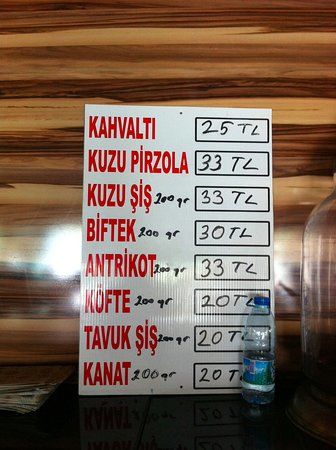 KAHVALTI 25 TL
KUZU PİRZOLA 33 TL
KUZU ŞİŞ 200 gr 33 TL
BİFTEK 200 gr 30 TL
ANTRİKOT 200 gr 33 TL
KÖFTE 200 gr 20 TL
TAVUK ŞİŞ 200 gr 20 TL
KANAT 200 gr 20 TL